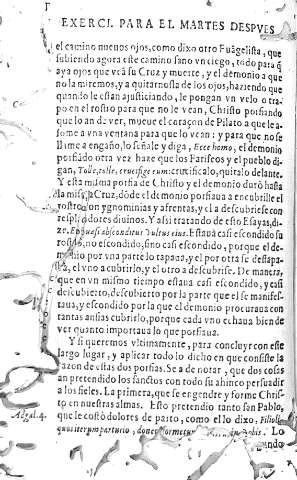 EXERCI. PARA EL MARTES DESPVES
el camino nueuos ojos, como dixo otro Euāgelista, que
subiendo agora este camino sano vn ciego, todo para q̄
aya ojos que veā su Cruz y muerte, y el demonio a que
no la miremos, y a quitarnosla de los ojos, haziendo que
quando le estàn ajusticiando, le pongan vn velo o tra-
po en el rostro para que no le vean, Christo porfiando
que lo an de ver, mueue el coraçon de Pilato a que le a-
some a vna ventana para que lo vean: y para que no se
llame a engaño, lo señale y diga, Ecce homo, el demonio
porfiādo otra vez haze que los Fariseos y el pueblo di-
gan, Tolle, tolle, crucifige eum: crucificalo, quitalo delante.
Y esta misma porfia de Christo y el demonio durò hasta
la misma Cruz, dōde el demonio porfiaua a encubrille el
rostro con ygnominias y afrentas, y el a descubrirse con
resplandores diuinos. Y assi tratando de esto Esayas, di-
ze. Et quasi absconditus vultus eius. Estauā casi escondido su
rostro, no escondido, sino casi escondido, porque el de-
monio por vna parte lo tapaua, y el por otra se destapa-
ua, el vno a cubrirlo, y el otro a descubrirse. De manera,
que en vn mismo tiempo estaua casi escondido, y casi
descubierto, descubierto por la parte que el se manifes-
taua, y escondido por la que el demonio procuraua con
tantas ansias cubrirlo, porque cada vno echaua bien de
ver quanto importaua lo que porfiaua.
Y si queremos vltimamente, para concluyr con este
largo lugar, y aplicar todo lo dicho en que consiste la
razon de estas dos porfias. Se a de notar, que dos cosas
an pretendido los sanctos con todo su ahinco persuadir
a los fieles. La primera, que se engendre y forme Chris-
to en nuestras almas. Esto pretendio tanto san Pablo,
Ad gal. 4. que le costò dolores de parto, como el lo dixo, Filioli
quos iterum parturio, donec formetur in vobis. Lo